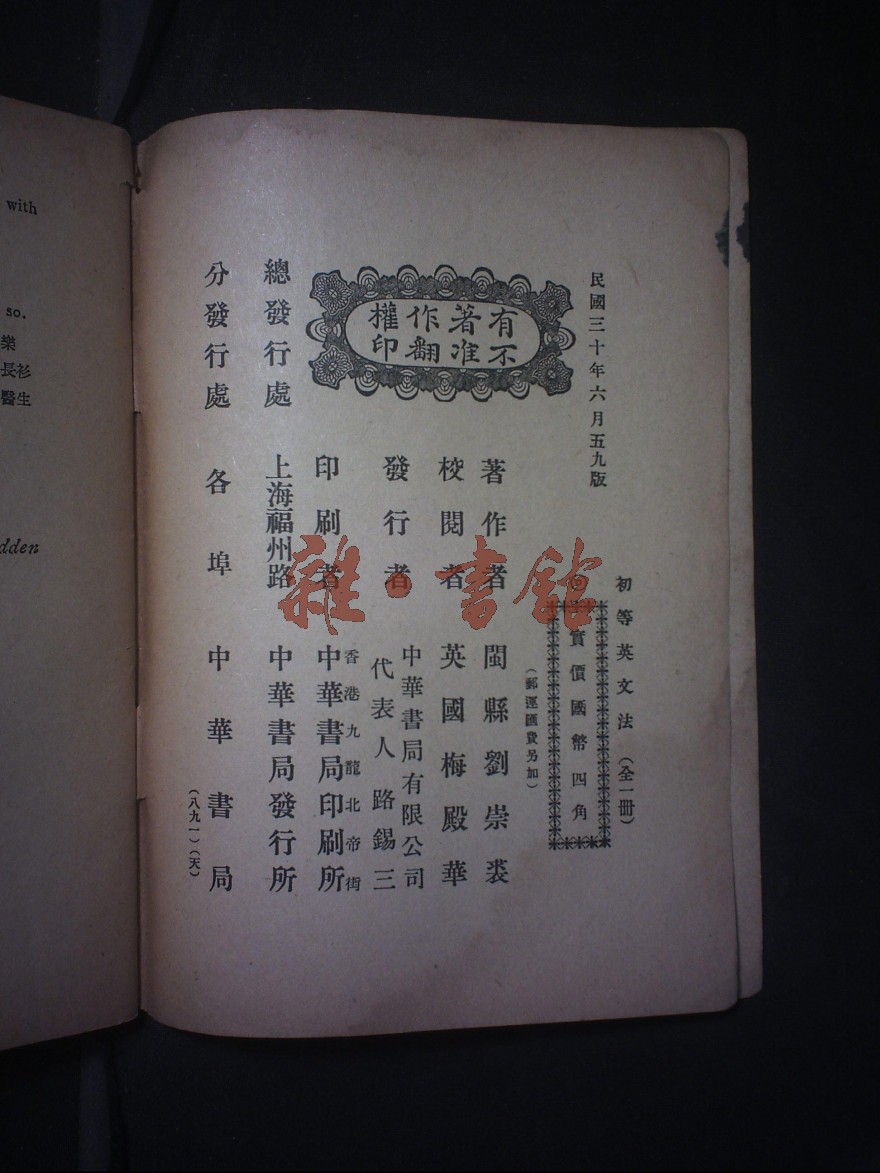 民國三十年六月五九版
初等英文法（全一冊）
實價國幣四角
（郵運匯費另加）
有著作權
不准翻印
著作者 閩縣劉崇裘
校閱者 英國梅殿華
發行者 中華書局有限公司
代表人路錫三
印刷者 中華書局印刷所
香港九龍北帝街
總發行處 上海福州路 中華書局發行所
分發行處 各埠 中華書局
（八九一）（天）
雜·書館
with
so.
樂
長衫
醫生
dden